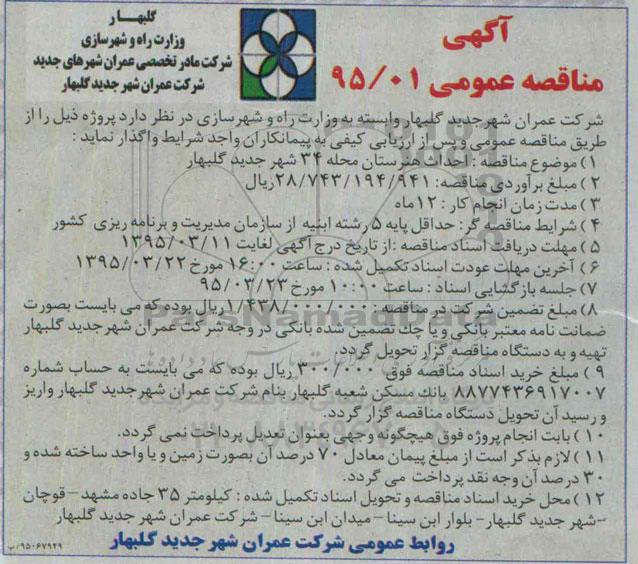 گلبهار
وزارت راه و شهرسازی
شرکت مادر تخصصی عمران شهرهای جدید
شرکت عمران شهر جدید گلبهار
آگهی
مناقصه عمومی ۹۵/۰۱
شرکت عمران شهر جدید گلبهار وابسته به وزارت راه و شهرسازی در نظر دارد پروژه ذیل را از
طریق مناقصه عمومی و پس از ارزیابی کیفی به پیمانکاران واجد شرایط واگذار نماید :
۱) موضوع مناقصه : احداث هنرستان محله ۳۴ شهر جدید گلبهار
۲) مبلغ برآوردی مناقصه: ۲۸/۷۴۳/۱۹۴/۹۴۱ریال
۳) مدت زمان انجام کار : ۱۲ماه
۴) شرایط مناقصه گر: حداقل پایه ۵ رشته ابنیه از سازمان مدیریت و برنامه ریزی کشور
۵) مهلت دریافت اسناد مناقصه :از تاریخ درج آگهی لغایت ۱۳۹۵/۰۳/۱۱
۶) آخرین مهلت عودت اسناد تکمیل شده : ساعت ۱۶:۰۰ مورخ ۱۳۹۵/۰۳/۲۲
۷) جلسه بازگشایی اسناد : ساعت ۱۰:۰۰ مورخ ۹۵/۰۳/۲۳
۸) مبلغ تضمین شرکت در مناقصه ۱/۴۳۸/۰۰۰/۰۰۰ریال بوده که می بایست بصورت
ضمانت نامه معتبر بانکی و یا چک تضمین شده بانکی در وجه شرکت عمران شهر جدید گلبهار
تهیه و به دستگاه مناقصه گزار تحویل گردد.
۹) مبلغ خرید اسناد مناقصه فوق ۳۰۰/۰۰۰ ریال بوده که می بایست به حساب شماره
۸۸۷۷۴۳۶۹۱۷۰۰۷ بانک مسکن شعبه گلبهار بنام شرکت عمران شهر جدید گلبهار واریز
و رسید آن تحویل دستگاه مناقصه گزار گردد.
۱۰) بابت انجام پروژه فوق هیچگونه وجهی بعنوان تعدیل پرداخت نمی گردد.
۱۱) لازم بذکر است از مبلغ پیمان معادل ۷۰ درصد آن بصورت زمین و یا واحد ساخته شده و
۳۰ درصد آن وجه نقد پرداخت می گردد.
۱۲) محل خرید اسناد مناقصه و تحویل اسناد تکمیل شده : کیلومتر ۳۵ جاده مشهد - قوچان
-شهر جدید گلبهار- بلوار ابن سینا - میدان ابن سینا - شرکت عمران شهر جدید گلبهار
روابط عمومی شرکت عمران شهر جدید گلبهار
۹۵۰۶۷۹۴۹/پ
ParsNamadData